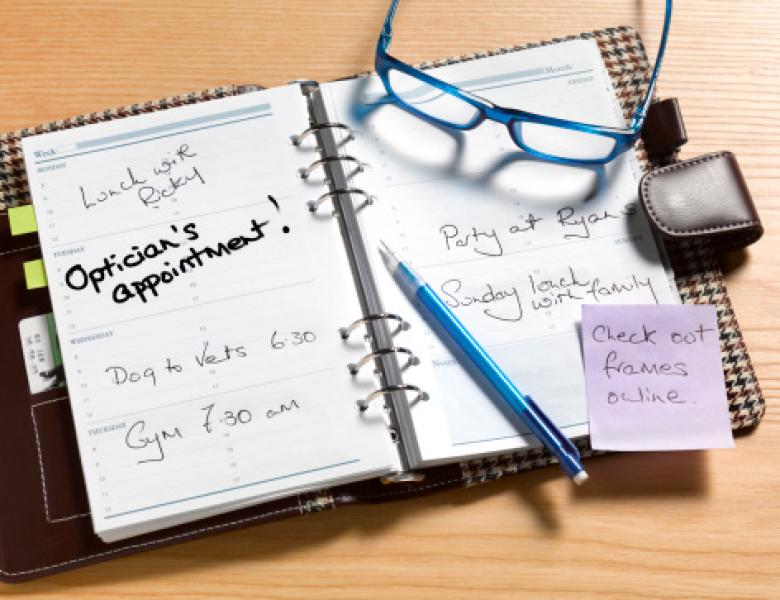 Week
MONDAY
Lunch with
Ricky
TUESDAY
Optician's
appointment!
WEDNESDAY
Dog to Vets 6.30
THURSDAY
Gym 7.30 am
Month
FRIDAY
Party at Ryan's
SUNDAY
Sunday lunch
with family
Notes
Check out
frames
online.